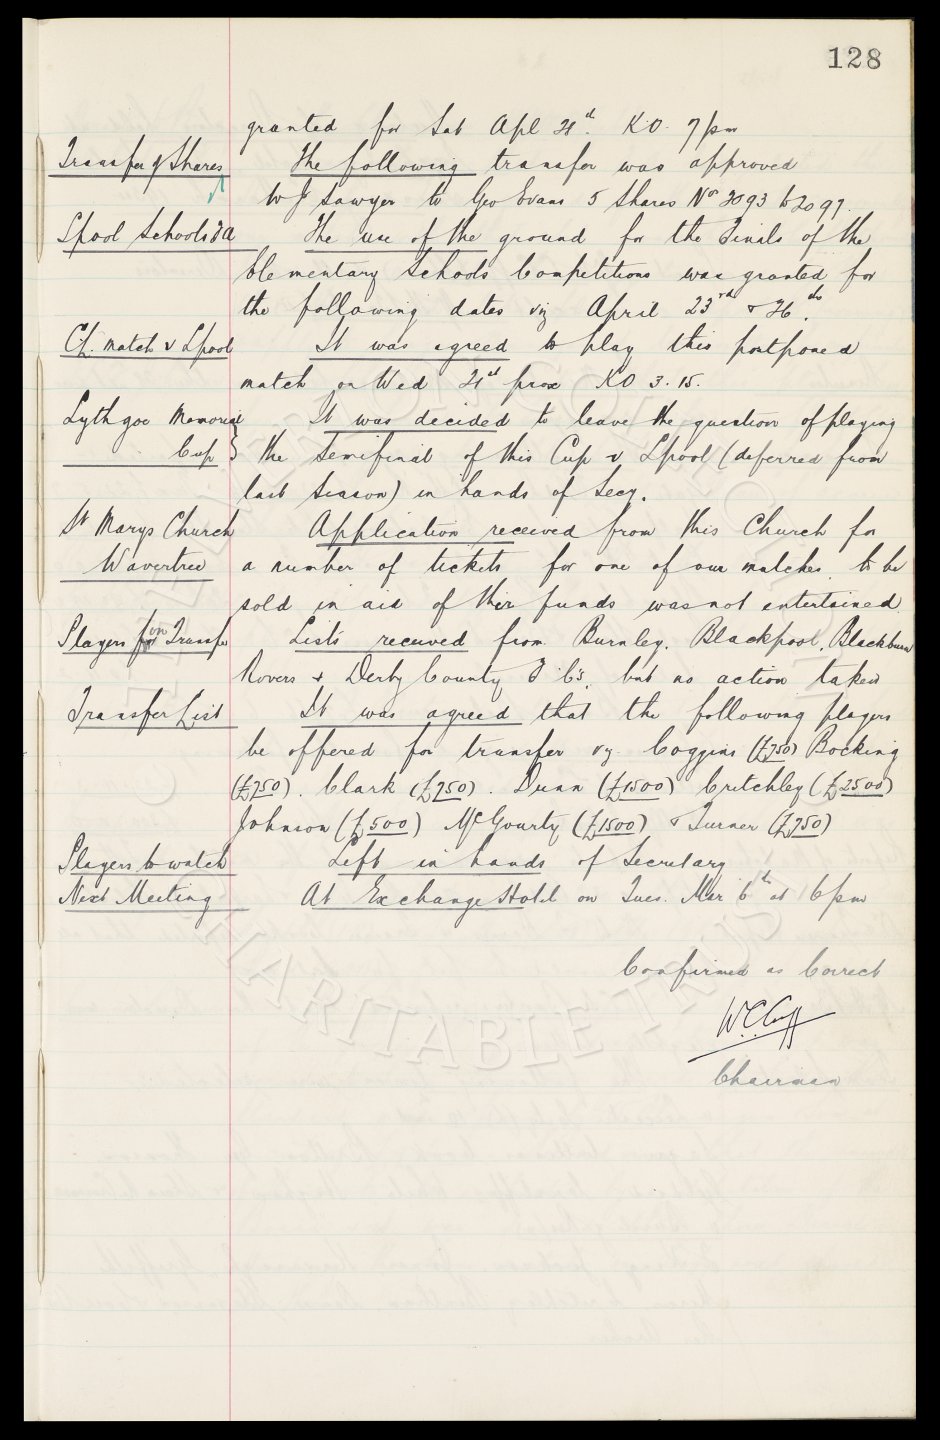 128
granted for Sat Apl 21st. K.O. 7 pm
Transfer of Shares The following transfer was approved
W J Sawyer to Geo Evans 5 Shares Nos 2093 to 2097.
Lpool Schools F A The use of the ground for the Finals of the
Elementary Schools Competitions was granted for
the following dates viz April 23rd & 26th.
Ch. match v Lpool It was agreed to play this postponed
match on Wed 21st prox KO 3.15.
Lythgoe Memorial It was decided to leave the question of playing
Cup the Semifinal of this Cup v Lpool (deferred from
last Season) in hands of Secy.
St Marys Church Application received from this Church for
Wavertree a number of tickets for one of our matches to be
sold in aid of their funds was not entertained.
Players on Transfer Lists received from Burnley, Blackpool, Blackburn
Rovers & Derby County F C's, but no action taken
Transfer List It was agreed that the following players
be offered for transfer viz. Coggins (£750) Bocking
(£750). Clark (£750). Dunn (£1500) Critchley (£2500)
Johnson (£500) McGourty (£1500) & Turner (£750)
Players to watch Left in hands of Secretary
Next Meeting At Exchange Hotel on Tues. Mar 6th at 6 pm
Confirmed as Correct
W.C. Cuff
Chairman
EVERTON COLLECTION
CHARITABLE TRUST